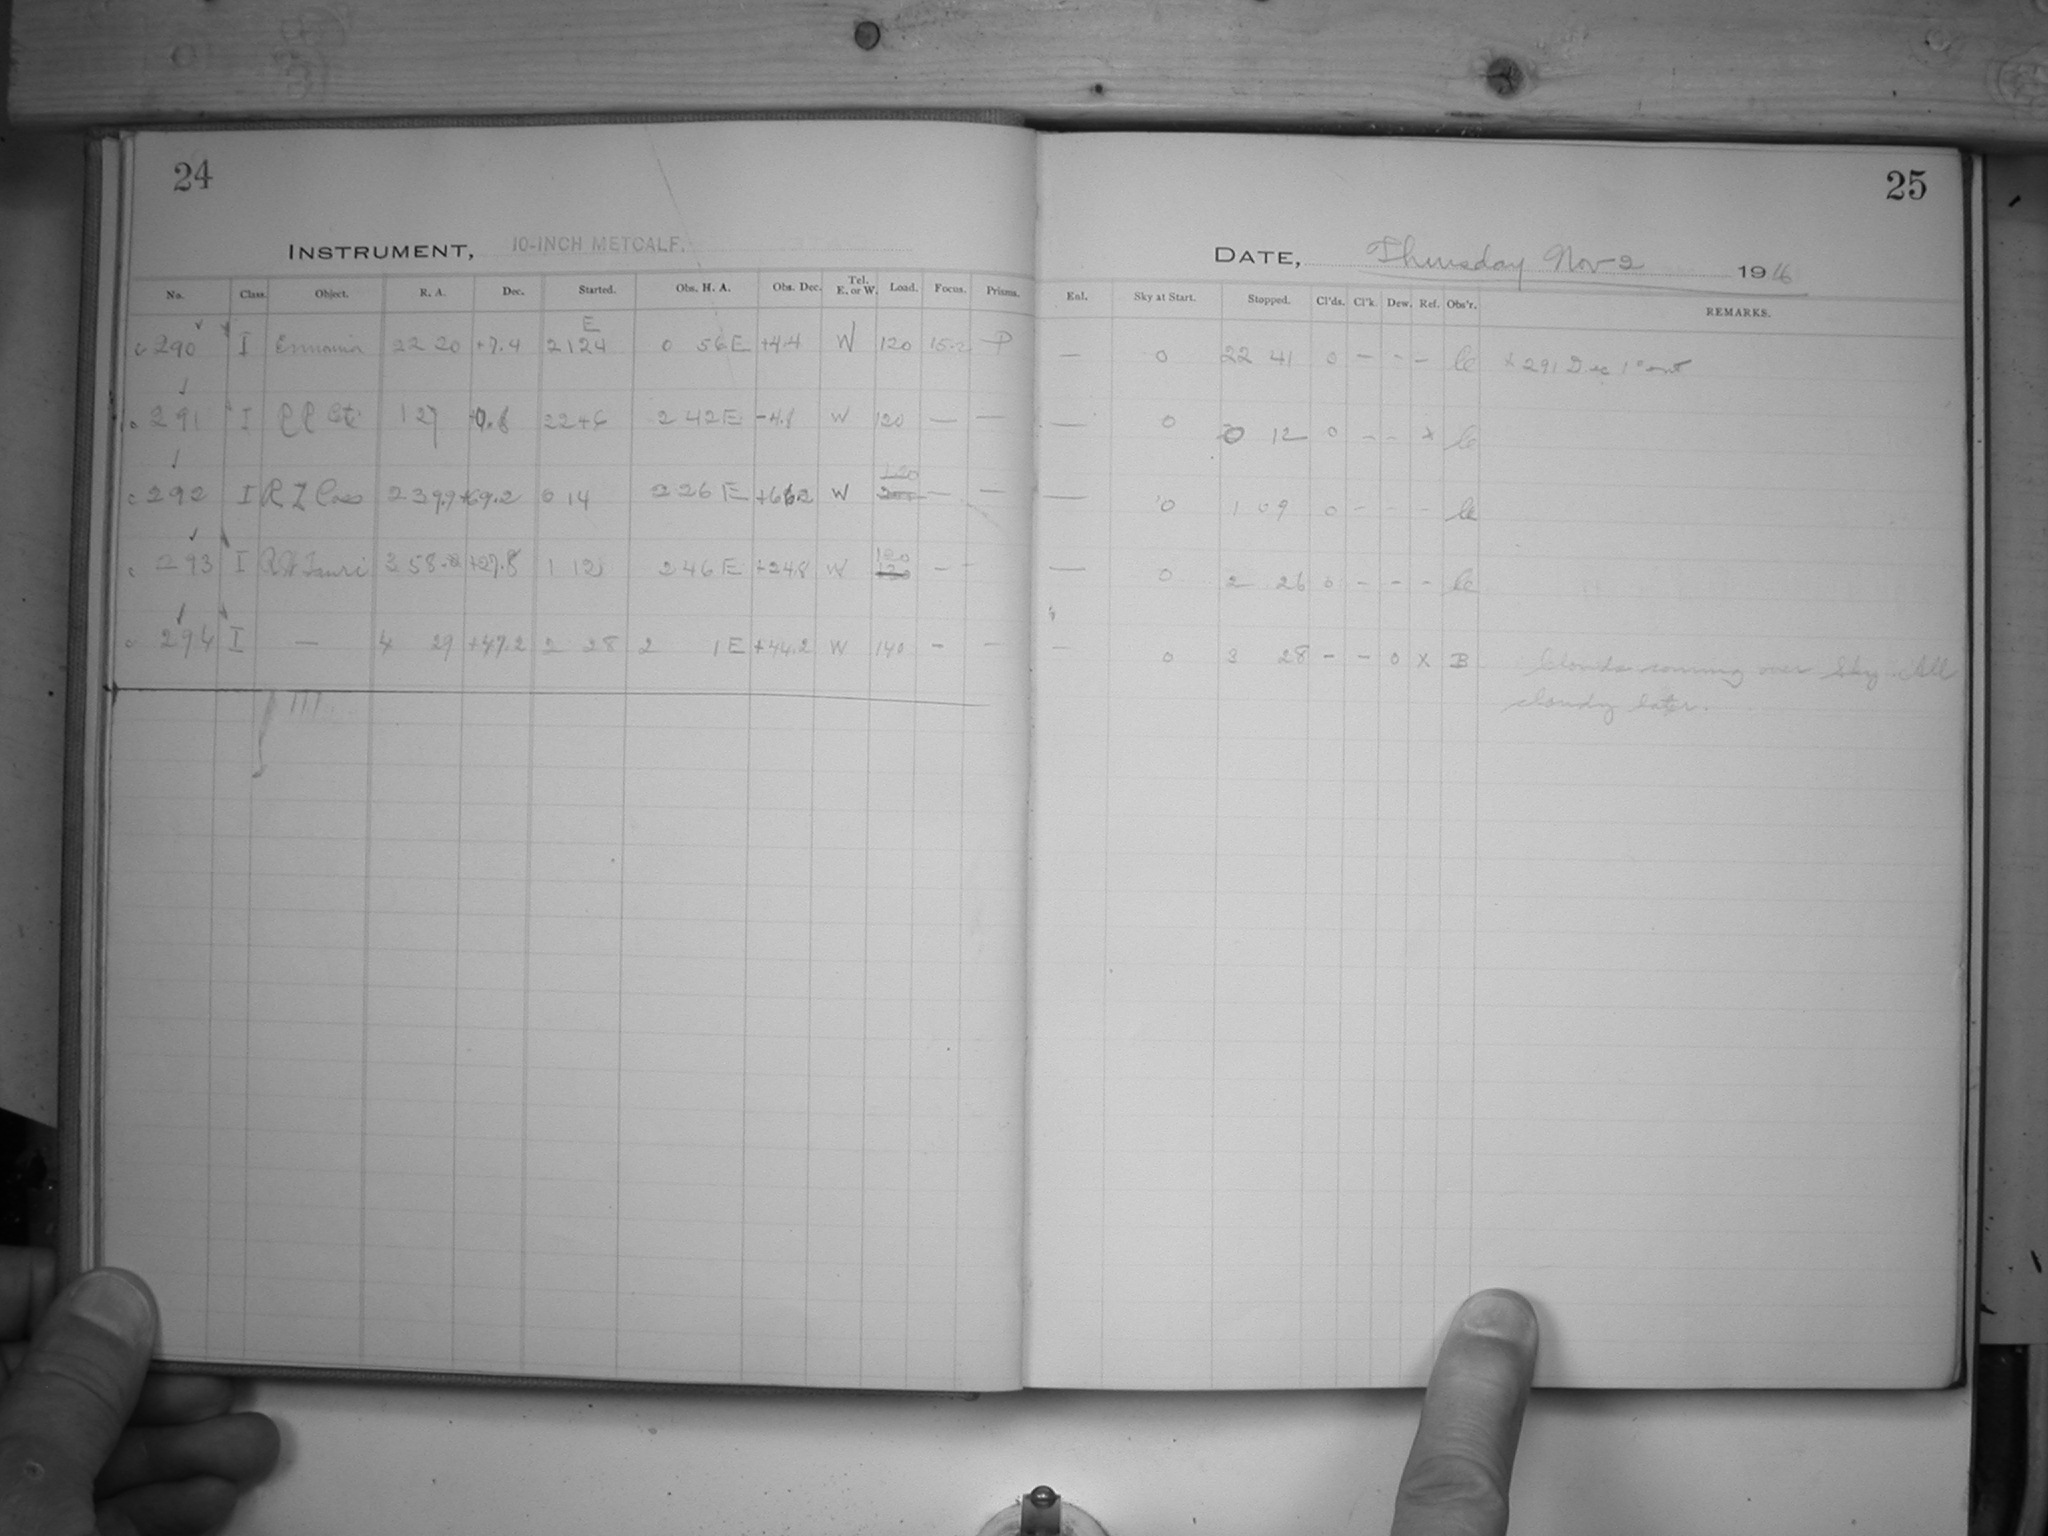 24
25
INSTRUMENT, 10-INCH METCALF.
DATE, Thursday Nov 2 1916
No. Class. Object. R. A. Dec. Started. Obs. H. A. Obs. Dec. Tel. E. or W. Load. Focus. Prisms. Enl. Sky at Start. Stopped. Cl'ds. Cl'k. Dew. Ref. Obs'r. REMARKS.
E
c 290 I Eunomia 22 20 +7.4 21 24 0 56 E +4.4 W 120 15.2 P — 0 22 41 0 – – – le × 291 Dec 1°
291 I 1 27 22 46 2 42 E -4.8 W 120 — — — 0 0 12 0 – – × le
120
c 292 I R Z Cas 2 39.9 +69.2 0 14 2 26 E +66.2 W — — — 0 1 09 0 – – – le
120
c 293 I RW Tauri 3 58. +27.8 1 12 2 46 E +24.8 W 120 – – — 0 2 26 0 – – – le
294 I — 4 29 +47.2 2 28 2 1 E +44.2 W 140 – – – 0 3 28 – – 0 X B Clouds coming over Sky. All
cloudy later.